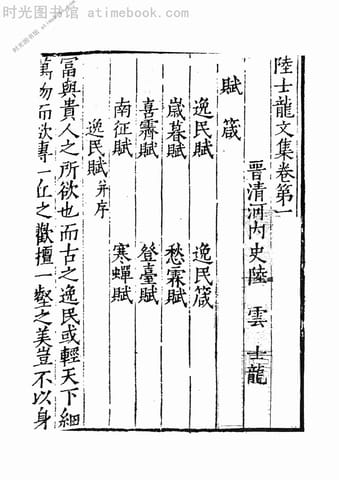 时光图书馆 www.atimebook.com
时光图书馆 atimebook.com
陸士龍文集卷第一
晉清河內史陸 雲 士龍
賦 箴
逸民賦 逸民箴
歲暮賦 愁霖賦
喜霽賦 登臺賦
南征賦 寒蟬賦
逸民賦并序
冨與貴人之所欲也而古之逸民或輕天下細
萬物而欲專一丘之歡擅一壑之美豈不以身
时光图书馆 www.atimebook.com